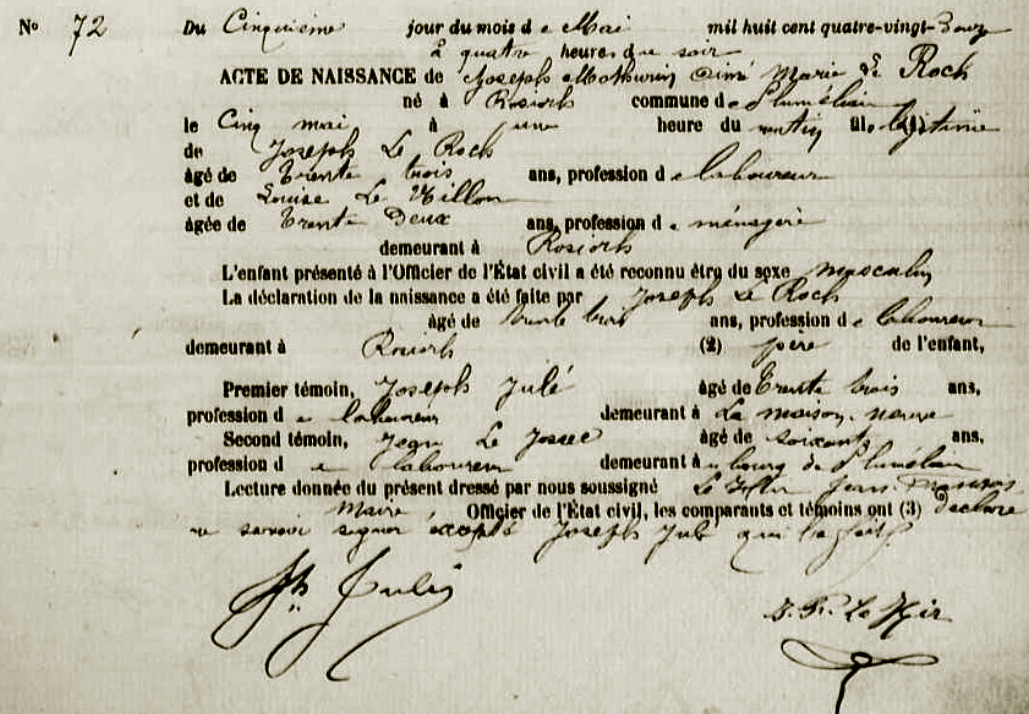 N° 72 Du Cinquième jour du mois de Mai mil huit cent quatre-vingt-Douze
à quatre heures du soir
ACTE DE NAISSANCE de Joseph Mathurin Aimé Marie Le Roch
né à commune de Plumélin
le Cinq mai à une heure du matin fils légitime
de Joseph Le Roch
âgé de Trente trois ans, profession de laboureur
et de Louise Le
âgée de Trente Deux ans, profession de ménagère
demeurant à
L'enfant présenté à l'Officier de l'État civil a été reconnu être du sexe masculin
La déclaration de la naissance a été faite par Joseph Le Roch
âgé de trente trois ans, profession de laboureur
demeurant à (2) père de l'enfant,
Premier témoin, Joseph Julé âgé de Trente trois ans,
profession de laboureur demeurant à La maison neuve
Second témoin, Le âgé de soixante ans,
profession de laboureur demeurant au bourg de Plumélin
Lecture donnée du présent dressé par nous soussigné Le Jean François
Maire, Officier de l'État civil, les comparants et témoins ont (3) déclaré
ne savoir signer excepté Joseph Julé qui l'a fait
Jh Julé
J. F. Le